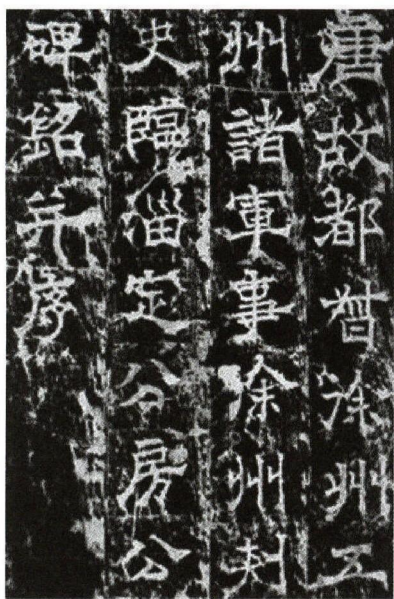 唐故都督徐州五
州諸軍事徐州刺
史臨淄定公房公
碑銘并序